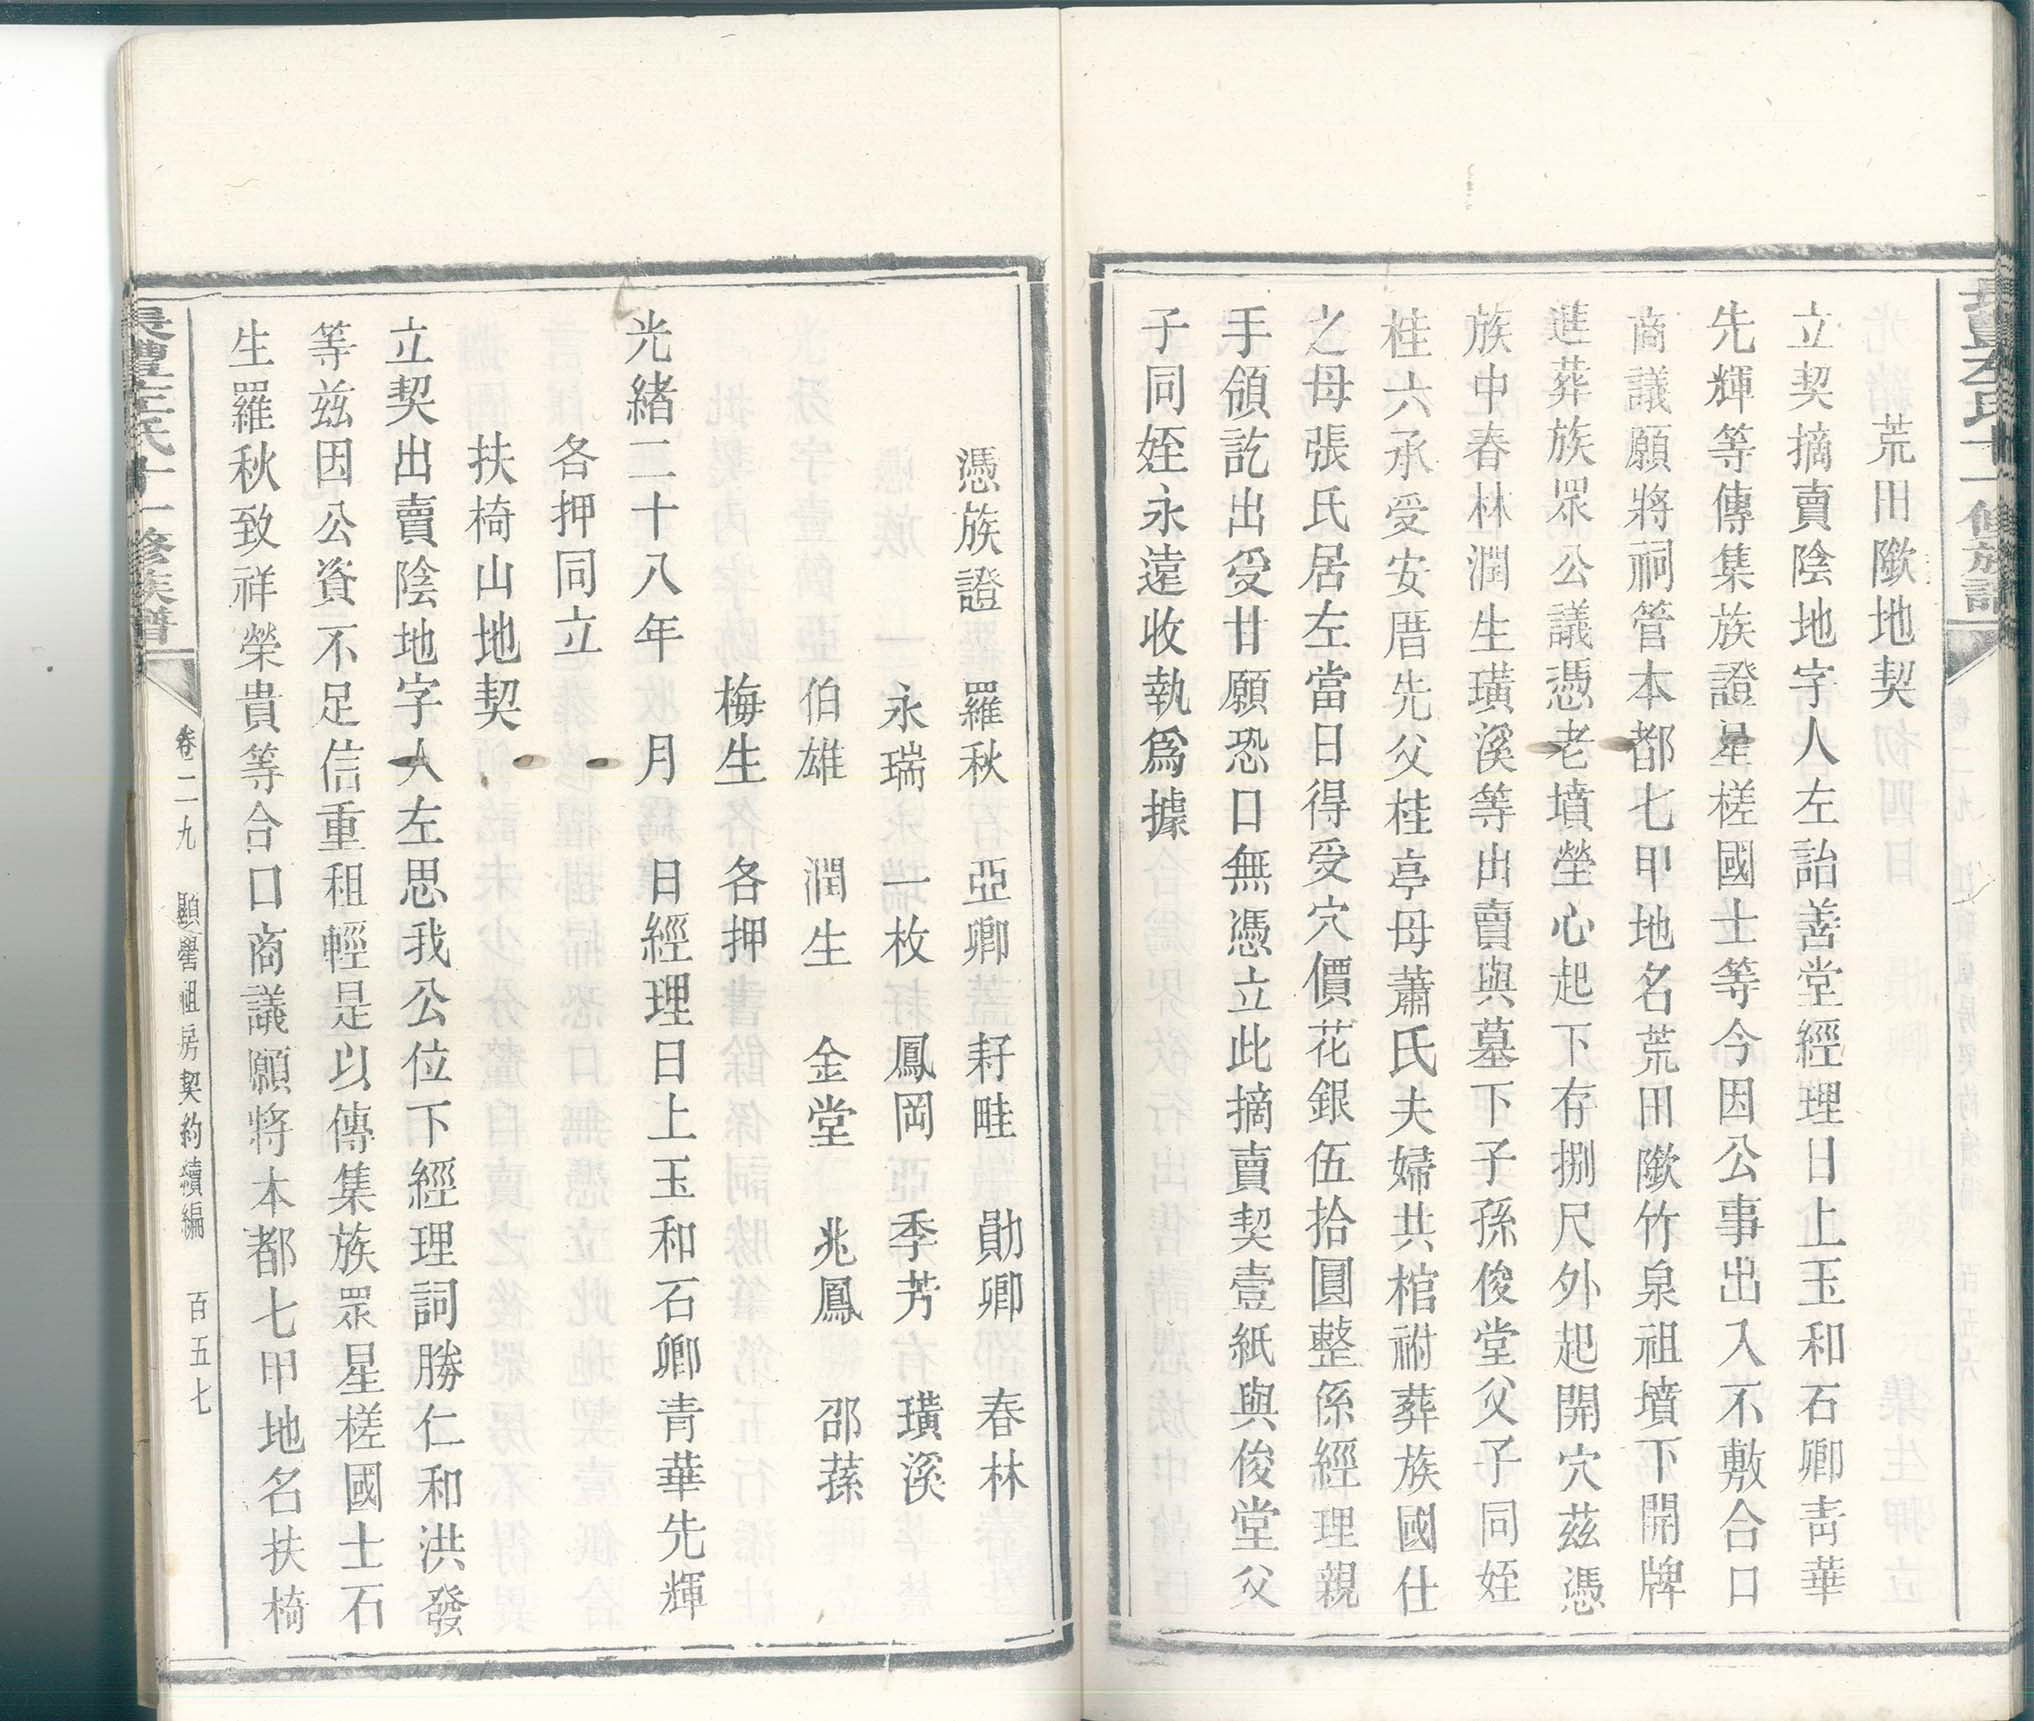 荒田歘地契
立契摘賣陰地字人左詒善堂經理日上玉和石卿靑華
先輝等傳集族證星槎國士等今因公事出入不敷合口
商議願將祠管本都七甲地名荒田歘竹泉祖墳下開牌
進葬族眾公議憑老墳塋心起下存捌尺外起開穴茲憑
族中春林潤生璜溪等出賣與墓下子孫俊堂父子同姪
桂六承受安厝先父桂亭母蕭氏夫婦共棺祔葬族國仕
之母張氏居左當日得受穴價花銀伍拾圓整係經理親
手領訖出受甘願恐口無憑立此摘賣契壹紙與俊堂父
子同姪永遠收執爲據
憑族證 羅秋 亞卿 耔畦 勛卿 春林
永瑞 一枚 鳳岡 季芳 璜溪
伯雄 潤生 金堂 兆鳳 邵蓀
梅生 各押
光緒二十八年 月 日經理日上玉和石卿青華先輝
各押同立
扶椅山地契
立契出賣陰地字人左思我公位下經理詞勝仁和洪發
等茲因公資不足信重租輕是以傳集族眾星槎國士石
生羅秋致祥榮貴等合口商議願將本都七甲地名扶椅
左氏十一修族譜
卷二九 顯譽祖房契約續編 百五七